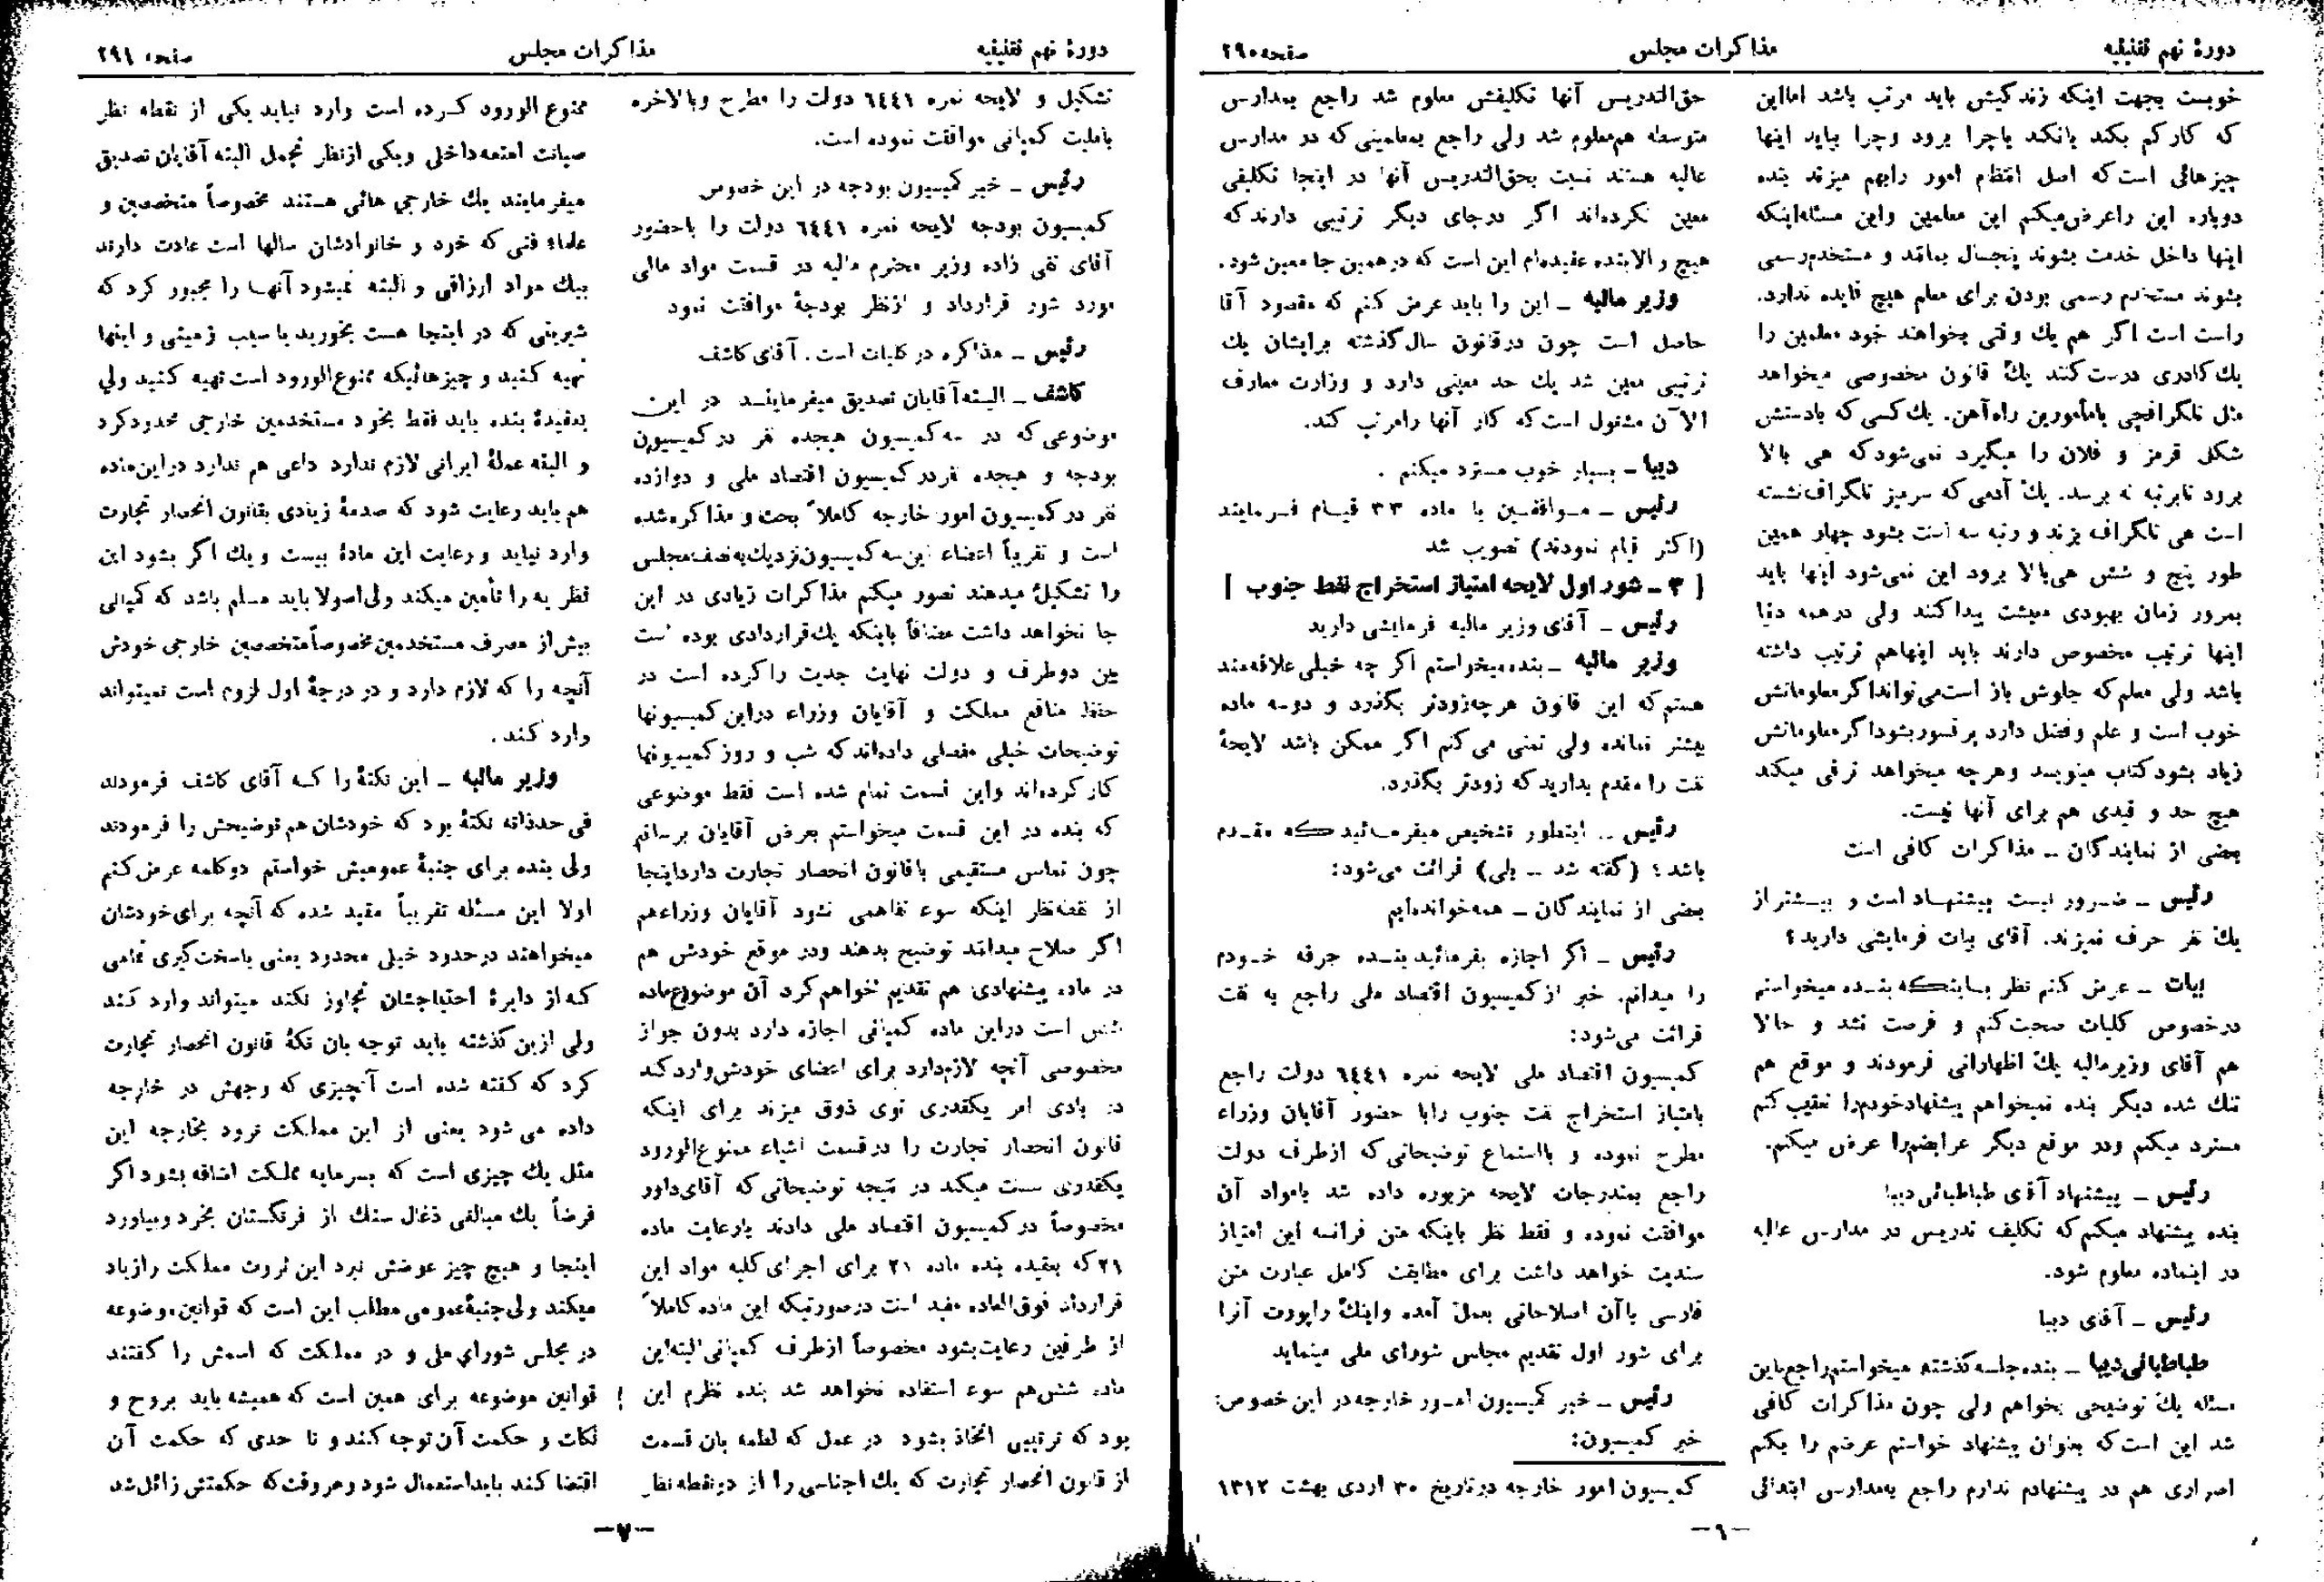 دورهٔ نهم تقنینیه
مذاکرات مجلس
صفحه ۲۹۰
خوبست بجهت اینکه زندگیش باید مرتب باشد اما این
که کار کم بکند یا نکند یا چرا برود و چرا بیاید اینها
چیزهائی است که اصل انتظام امور را بهم میزند بنده
دوباره این را عرض میکنم این معلمین و این مسئله اینکه
اینها داخل خدمت بشوند پنجسال بمانند و مستخدم رسمی
بشوند مستخدم رسمی بودن برای معلم هیچ فایده ندارد.
راست است اگر هم یك وقتی بخواهند خود معلمین را
یك کادری درست کنند یك قانون مخصوصی میخواهد
مثل تلگرافچی یا مأمورین راه‌آهن. یك کسی که با دستش
شکل قرمز و فلان را میگیرد نمی‌شود که هی بالا
برود تا برتبه نه برسد. یك آدمی که سر میز تلگراف نشسته
است هی تلگراف بزند و رتبه سه است بشود چهار همین
طور پنج و شش هی بالا برود این نمی‌شود اینها باید
بمرور زمان بهبودی معیشت پیدا کنند ولی در همه دنیا
اینها ترتیب مخصوص دارند باید اینها هم ترتیب داشته
باشد ولی معلم که جلوش باز است می‌تواند اگر معلوماتش
خوب است و علم و فضل دارد پرفسور بشود اگر معلوماتش
زیاد بشود کتاب مینویسد و هر چه میخواهد ترقی میکند
هیچ حد و قیدی هم برای آنها نیست.
بعضی از نمایندگان ـ مذاکرات کافی است
رئیس ـ ضرور نیست پیشنهاد است و بیشتر از
یك نفر حرف نمیزند. آقای بیات فرمایشی دارید؟
بیات ـ عرض کنم نظر باینکه بنده میخواستم
در خصوص کلیات صحبت کنم و فرصت نشد و حالا
هم آقای وزیر مالیه یك اظهاراتی فرمودند و موقع هم
تنك شده دیگر بنده نمیخواهم پیشنهاد خودم را تعقیب کنم
مسترد میکنم و در موقع دیگر عرایضم را عرض میکنم.
رئیس ـ پیشنهاد آقای طباطبائی دیبا
بنده پیشنهاد میکنم که تکلیف تدریس در مدارس عالیه
در اینماده معلوم شود.
رئیس ـ آقای دیبا
طباطبائی دیبا ـ بنده جلسه گذشته میخواستم راجع باین
مسئله یك توضیحی بخواهم ولی چون مذاکرات کافی
شد این است که بعنوان پیشنهاد خواستم عرضم را بکم
اصراری هم در پیشنهادم ندارم راجع بمدارس ابتدائی
حق‌التدریس آنها تکلیفش معلوم شد راجع بمدارس
متوسطه هم معلوم شد ولی راجع بمعلمینی که در مدارس
عالیه هستند نسبت بحق‌التدریس آنها در اینجا تکلیفی
معین نکرده‌اند اگر در جای دیگر ترتیبی دارند که
هیچ و الا بنده عقیده‌ام این است که در همین جا معین شود.
وزیر مالیه ـ این را باید عرض کنم که مقصود آقا
حاصل است چون در قانون سال گذشته برایشان یك
ترتیبی معین شد یك حد معینی دارد و وزارت معارف
الآن مشغول است که کار آنها را مرتب کند.
دیبا ـ بسیار خوب مسترد میکنم .
رئیس ـ موافقین با ماده ۳۳ قیام فرمایند
(اکثر قیام نمودند) تصویب شد
[ ۳ ـ شور اول لایحه امتیاز استخراج نفط جنوب ]
رئیس ـ آقای وزیر مالیه فرمایشی دارید
وزیر مالیه ـ بنده میخواستم اگر چه خیلی علاقه‌مند
هستم که این قانون هر چه زودتر بگذرد و دو سه ماده
بیشتر نمانده ولی تمنی می‌کنم اگر ممکن باشد لایحهٔ
نفت را مقدم بدارید که زودتر بگذرد.
رئیس ـ اینطور تشخیص میفرمائید که مقدم
باشد؟ (گفته شد ـ بلی) قرائت می‌شود:
بعضی از نمایندگان ـ همه خوانده‌ایم
رئیس ـ اگر اجازه بفرمائید بنده حرفه خودم
را میدانم. خبر از کمیسیون اقتصاد ملی راجع به نفت
قرائت می‌شود:
کمیسیون اقتصاد ملی لایحه نمره ۶۴۴۱ دولت راجع
بامتیاز استخراج نفت جنوب را با حضور آقایان وزراء
مطرح نموده و با استماع توضیحاتی که از طرف دولت
راجع بمندرجات لایحه مزبوره داده شد با مواد آن
موافقت نموده و فقط نظر باینکه متن فرانسه این امتیاز
سندیت خواهد داشت برای مطابقت کامل عبارت متن
فارسی با آن اصلاحاتی بعمل آمده و اینك راپورت آنرا
برای شور اول تقدیم مجلس شورای ملی مینماید
رئیس ـ خبر کمیسیون امور خارجه در این خصوص:
خبر کمیسیون:
کمیسیون امور خارجه در تاریخ ۳۰ اردی بهشت ۱۳۱۲
ـ۶ـ
دورهٔ نهم تقنینیه
مذاکرات مجلس
صفحه ۲۹۱
تشکیل و لایحه نمره ۶۴۴۱ دولت را مطرح و بالاخره
با ملیت کمپانی موافقت نموده است.
رئیس ـ خبر کمیسیون بودجه در این خصوص
کمیسیون بودجه لایحه نمره ۶۴۴۱ دولت را با حضور
آقای تقی زاده وزیر محترم مالیه در قسمت مواد مالی
مورد شور قرارداد و از نظر بودجهٔ موافقت نمود
رئیس ـ مذاکره در کلیات است. آقای کاشف
کاشف ـ البته آقایان تصدیق میفرمایند در این
موضوعی که در سه کمیسیون هیجده نفر در کمیسیون
بودجه و هیجده نفر در کمیسیون اقتصاد ملی و دوازده
نفر در کمیسیون امور خارجه کاملاً بحث و مذاکره شده
است و تقریباً اعضاء این سه کمیسیون نزدیك به نصف مجلس
را تشکیل میدهند تصور میکنم مذاکرات زیادی در این
جا نخواهد داشت مضافاً باینکه یك قراردادی بوده است
بین دو طرف و دولت نهایت جدیت را کرده است در
حفظ منافع مملکت و آقایان وزراء در این کمیسیونها
توضیحات خیلی مفصلی داده‌اند که شب و روز کمیسیونها
کار کرده‌اند و این قسمت تمام شده است فقط موضوعی
که بنده در این قسمت میخواستم بعرض آقایان برسانم
چون تماس مستقیمی با قانون انحصار تجارت دارد اینجا
از نقطه نظر اینکه سوء تفاهمی نشود آقایان وزراء هم
اگر صلاح میدانند توضیح بدهند و در موقع خودش هم
در ماده پیشنهادی هم تقدیم خواهم کرد آن موضوع ماده
شش است در این ماده کمپانی اجازه دارد بدون جواز
مخصوصی آنچه لازم دارد برای اعضای خودش وارد کند
در بادی امر یکقدری توی ذوق میزند برای اینکه
قانون انحصار تجارت را در قسمت اشیاء ممنوع‌الورود
یکقدری سست میکند در نتیجه توضیحاتی که آقای داور
مخصوصاً در کمیسیون اقتصاد ملی دادند با رعایت ماده
۲۱ که بعقیده بنده ماده ۲۱ برای اجرای کلیه مواد این
قرارداد فوق‌العاده مفید است در صورتیکه این ماده کاملاً
از طرفین رعایت بشود مخصوصاً از طرف کمپانی البته این
ماده شش هم سوء استفاده نخواهد شد بنده نظرم این
بود که ترتیبی اتخاذ بشود در عمل که لطمه بان قسمت
از قانون انحصار تجارت که یك اجناسی را از دو نقطه نظر
ممنوع الورود کرده است وارد نیاید یکی از نقطه نظر
صیانت امتعه داخلی و یکی از نظر تجمل البته آقایان تصدیق
میفرمایند یك خارجی هائی هستند مخصوصاً متخصصین و
علماء فنی که خود و خانوادشان سالها است عادت دارند
بیك مواد ارزاقی و البته نمیشود آنها را مجبور کرد که
شیرینی که در اینجا هست بخورید یا سیب زمینی و اینها
تهیه کنید و چیزهائیکه ممنوع‌الورود است تهیه کنید ولی
بعقیدهٔ بنده باید فقط بخود مستخدمین خارجی محدود کرد
و البته عملهٔ ایرانی لازم ندارد داعی هم ندارد در این ماده
هم باید رعایت شود که صدمهٔ زیادی بقانون انحصار تجارت
وارد نیاید و رعایت این مادهٔ بیست و یك اگر بشود این
نظر یه را تأمین میکند ولی اصولا باید مسلم باشد که کمپانی
بیش از مصرف مستخدمین مخصوصاً متخصصین خارجی خودش
آنچه را که لازم دارد و در درجهٔ اول لزوم است نمیتواند
وارد کند.
وزیر مالیه ـ این نکتهٔ را که آقای کاشف فرمودند
فی حدذاته نکتهٔ بود که خودشان هم توضیحش را فرمودند
ولی بنده برای جنبهٔ عمومیش خواستم دو کلمه عرض کنم
اولا این مسئله تقریباً مقید شده که آنچه برای خودشان
میخواهند در حدود خیلی محدود یعنی با سخت گیری تمامی
که از دایرهٔ احتیاجشان تجاوز نکند میتواند وارد کند
ولی ازین گذشته باید توجه بان نکتهٔ قانون انحصار تجارت
کرد که گفته شده است آنچیزی که وجهش در خارجه
داده می شود یعنی از این مملکت نرود بخارجه این
مثل یك چیزی است که بسرمایه مملکت اضافه بشود اگر
فرضاً یك مبالغی ذغال سنك از فرنگستان بخرد و بیاورد
اینجا و هیچ چیز عوضش نبرد این ثروت مملکت را زیاد
میکند ولی جنبهٔ عمومی مطلب این است که قوانین موضوعه
در مجلس شورای ملی و در مملکت که اسمش را گفتند
قوانین موضوعه برای همین است که همیشه باید بروح و
نکات و حکمت آن توجه کنند و تا حدی که حکمت آن
اقتضا کند باید استعمال شود و هر وقت که حکمتش زائل شد
ـ۷ـ